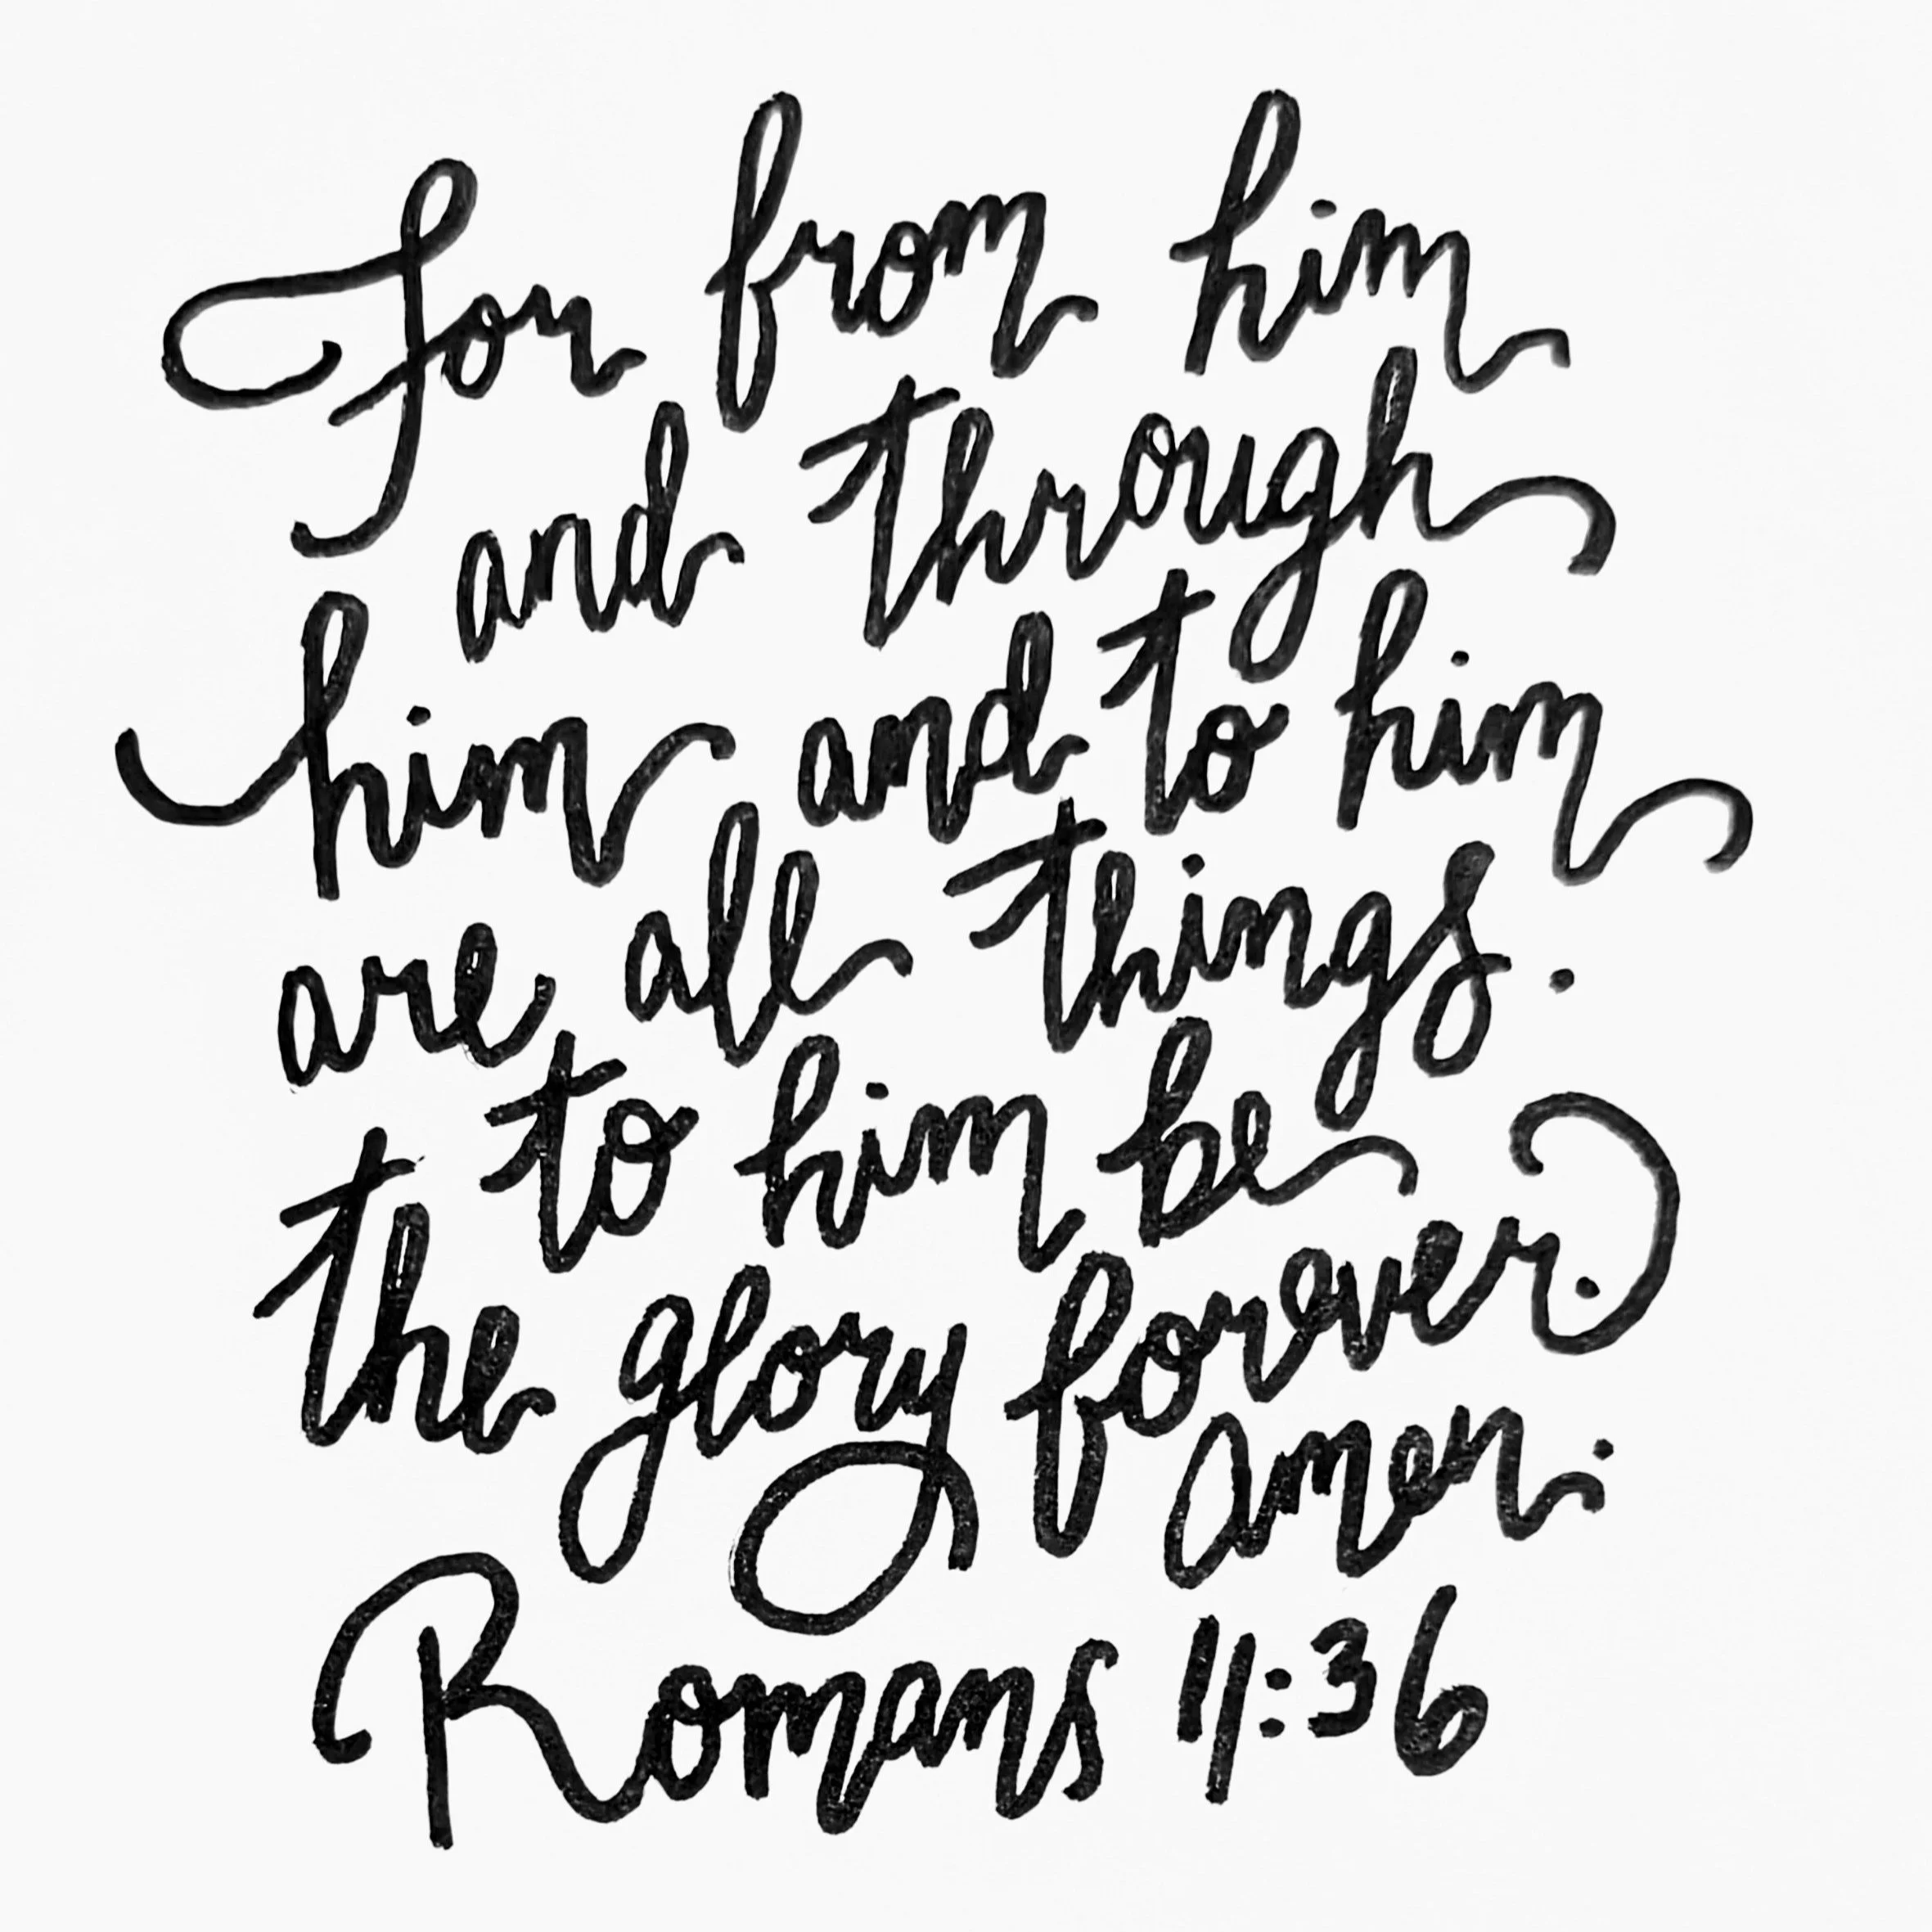 For from him
and through
him and to him
are all things.
to him be
the glory forever.
amen.
Romans 11:36